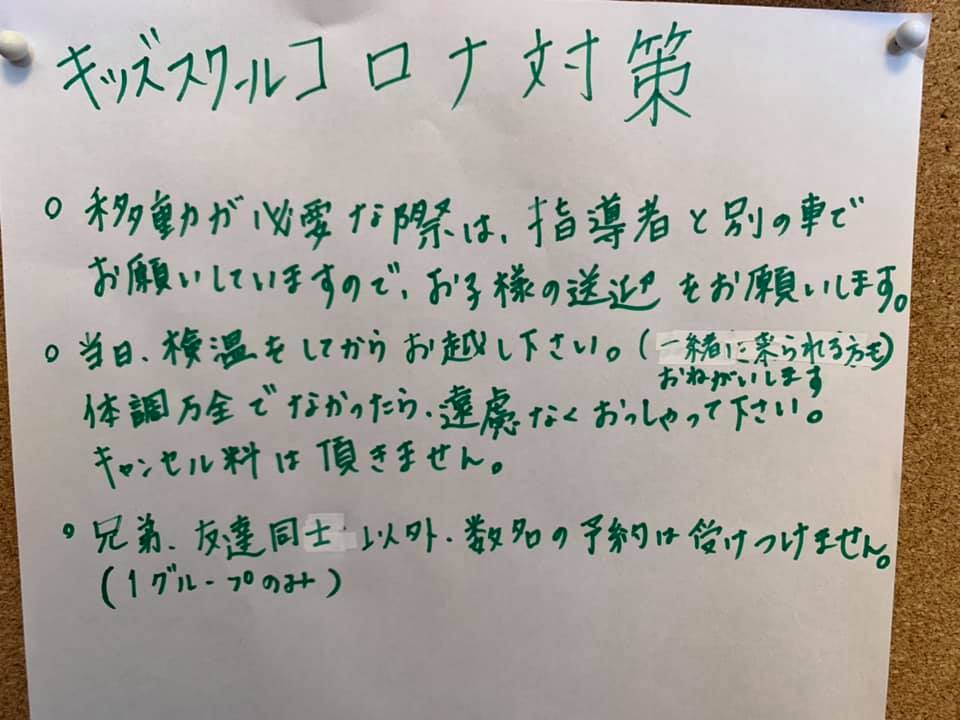 キッズスクールコロナ対策
○ 移動が必要な際は、指導者と別の車で
お願いしていますので、お子様の送迎をお願いします。
○ 当日、検温をしてからお越し下さい。(一緒に来られる方も)
おねがいします
体調万全でなかったら、遠慮なくおっしゃって下さい。
キャンセル料は頂きません。
○ 兄弟、友達同士以外、数名の予約は受けつけません。
(1グループのみ)